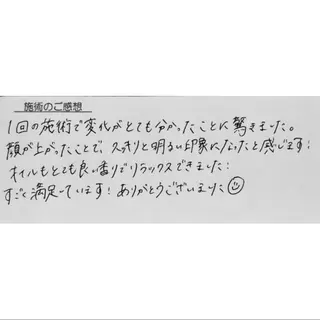 施術のご感想
1回の施術で変化がとても分かったことに驚きました。
顔が上がったことで、スッキリと明るい印象になったと感じます!
オイルもとても良い香りでリラックスできました!
すごく満足しています!ありがとうございました☺